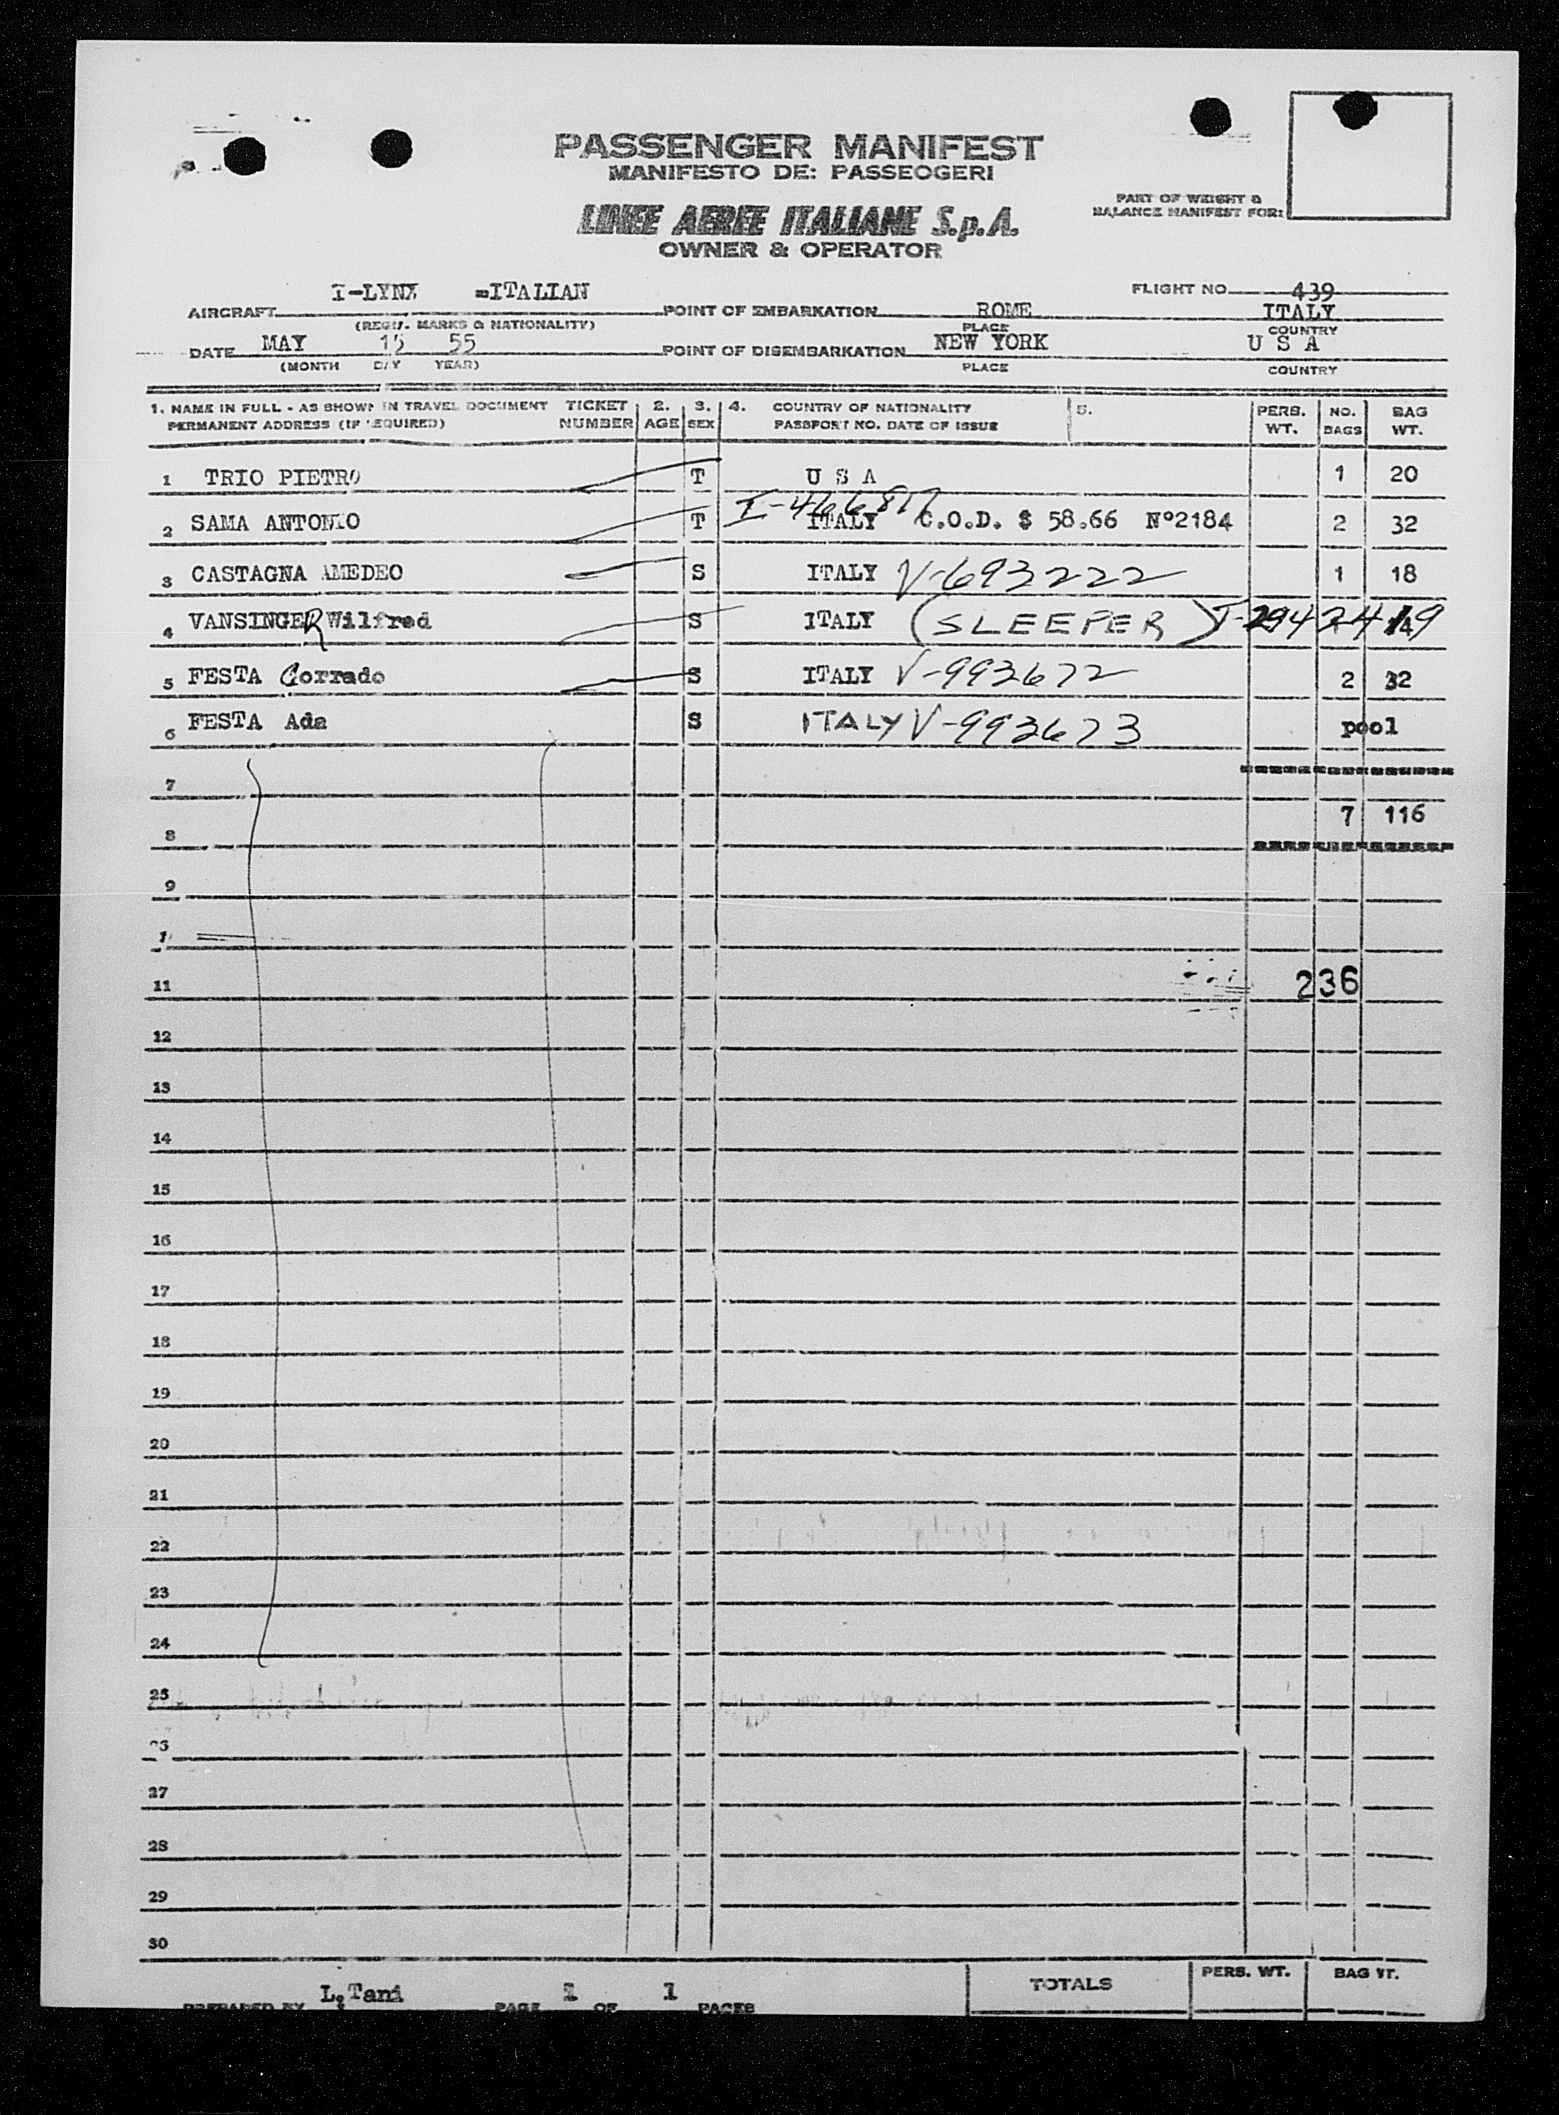 PASSENGER MANIFEST
MANIFESTO DE: PASSEOGERI
LINEE AEREE ITALIANE S.p.A.
OWNER & OPERATOR
PART OF WEIGHT &
BALANCE MANIFEST FOR:
FLIGHT NO. 439
AIRCRAFT I-LYNX =ITALIAN POINT OF EMBARKATION ROME ITALY
(REGIS. MARKS & NATIONALITY) PLACE COUNTRY
DATE MAY 15 55 POINT OF DISEMBARKATION NEW YORK U S A
(MONTH DAY YEAR) PLACE COUNTRY
1. NAME IN FULL - AS SHOWN IN TRAVEL DOCUMENT TICKET 2. 3. 4. COUNTRY OF NATIONALITY 5. PERS. NO. BAG
PERMANENT ADDRESS (IF REQUIRED) NUMBER AGE SEX PASSPORT NO. DATE OF ISSUE WT. BAGS WT.
1 TRIO PIETRO T U S A 1 20
2 SAMA ANTONIO T ITALY C.O.D. $ 58.66 Nº2184 2 32
3 CASTAGNA AMEDEO S ITALY V-693222 1 18
4 VANSINGER Wilfred S ITALY (SLEEPER) 14
5 FESTA Corrado S ITALY V-993672 2 32
6 FESTA Ada S ITALY V-993673 pool
7
7 116
8
9
11 236
12
13
14
15
16
17
18
19
20
21
22
23
24
25
27
28
29
30
PREPARED BY L.Tani PAGE 1 OF 1 PAGES TOTALS PERS. WT. BAG WT.